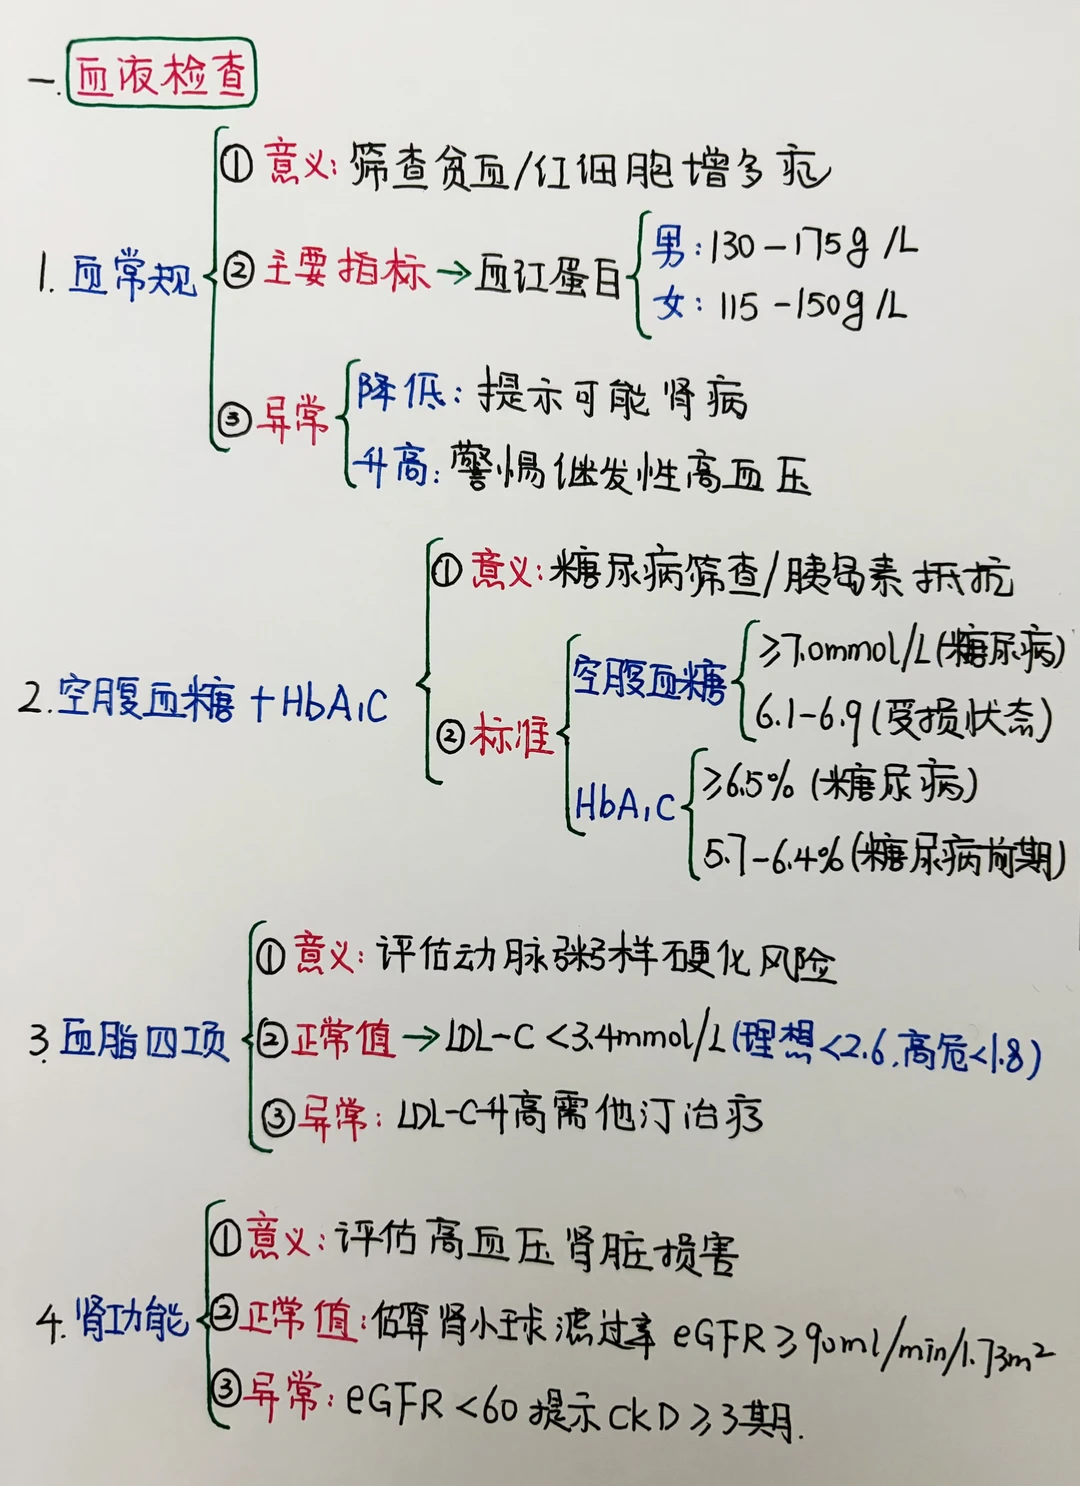 一. 血液检查
① 意义: 筛查贫血/红细胞增多症
1. 血常规
② 主要指标→血红蛋白
男: 130-175g/L
女: 115-150g/L
③ 异常
降低: 提示可能肾病
升高: 警惕继发性高血压
① 意义: 糖尿病筛查/胰岛素抵抗
2. 空腹血糖+HbA₁C
② 标准
空腹血糖
≥7.0mmol/L(糖尿病)
6.1-6.9(受损状态)
HbA₁C
≥6.5%(糖尿病)
5.7-6.4%(糖尿病前期)
① 意义: 评估动脉粥样硬化风险
3. 血脂四项
② 正常值→LDL-C<3.4mmol/L(理想<2.6,高危<1.8)
③ 异常: LDL-C升高需他汀治疗
① 意义: 评估高血压肾脏损害
4. 肾功能
② 正常值: 估算肾小球滤过率 eGFR≥90ml/min/1.73m²
③ 异常: eGFR<60提示CKD≥3期.